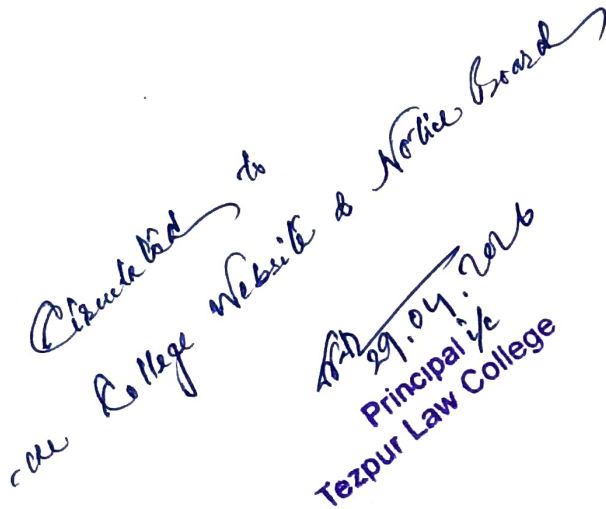 Circulated to
the College Website & Notice Board
29.04.2026
Principal i/c
Tezpur Law College